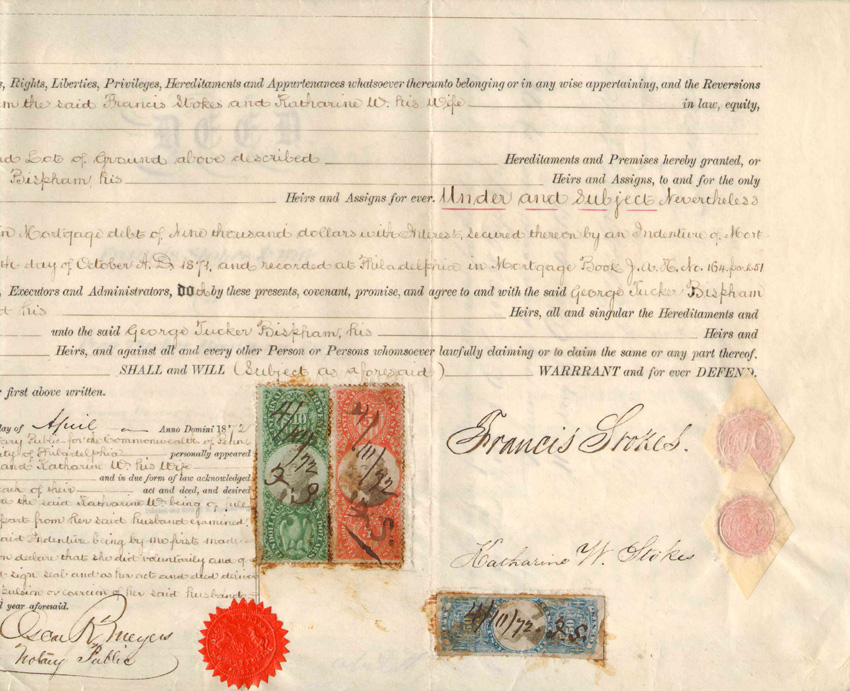 s, Rights, Liberties, Privileges, Hereditaments and Appurtenances whatsoever thereunto belonging or in any wise appertaining, and the Reversions
m the said Francis Stokes and Katharine W. his Wife in law, equity,
nd Lot of Ground above described Hereditaments and Premises hereby granted, or
Bispham, his Heirs and Assigns, to and for the only
Heirs and Assigns for ever. Under and Subject Nevertheless
in Mortgage debt of Nine thousand dollars with Interest, secured thereon by an Indenture of Mort-
th day of October A.D. 1871, and recorded at Philadelphia in Mortgage Book J.A.H. No. 164.
, Executors and Administrators, DO by these presents, covenant, promise, and agree to and with the said George Tucker Bispham
d his Heirs, all and singular the Hereditaments and
unto the said George Tucker Bispham, his Heirs and
Heirs, and against all and every other Person or Persons whomsoever lawfully claiming or to claim the same or any part thereof.
SHALL and WILL (Subject as aforesaid) WARRRANT and for ever DEFEND.
r first above written.
day of April Anno Domini 1872
ary Public for the Commonwealth of Penn
ty of Philadelphia personally appeared
and Katharine W. his Wife
and in due form of law acknowledged
of their act and deed, and desired
the said Katharine W. being of full
part from her said husband examined
aid Indenture being by me first made
n declare that she did voluntarily and
sign seal and as her act and deed
or coercion of her said husband
d year aforesaid.
Notary Public
4/11/72
F. S.
4/11/72
F. S.
Francis Stokes.
Katharine W. Stokes
4/11/72 F. S.